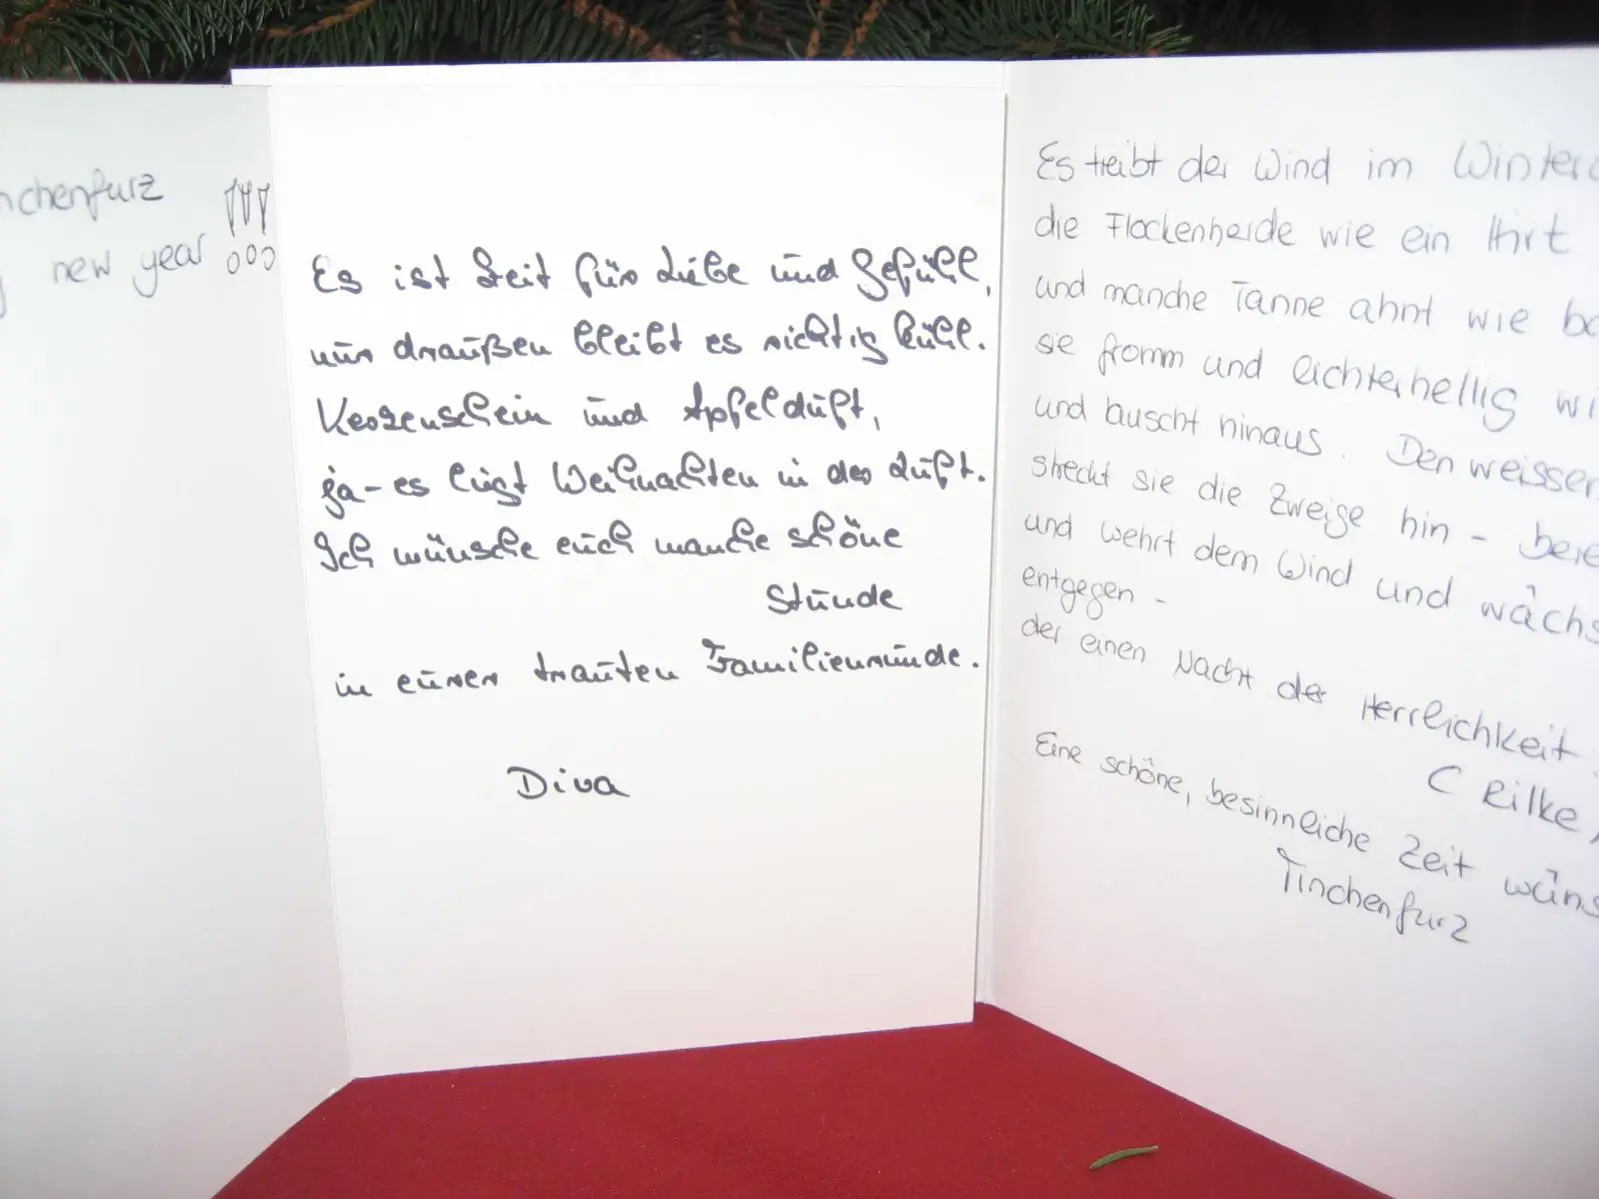 nchenfurz !!!
new year
Es ist Zeit für Liebe und Gefühl,
nur draußen bleibt es richtig kühl.
Kerzenschein und Apfelduft,
ja - es liegt Weihnachten in der Luft.
Ich wünsche euch manche schöne
Stunde
in eurer trauten Familienrunde.
Diva
Es treibt der Wind im Winter
die Flockenherde wie ein Hirt
und manche Tanne ahnt wie ba
sie fromm und lichterhellig wi
und lauscht hinaus. Den weissen
streckt sie die Zweige hin - bere
und wehrt dem Wind und wächs
entgegen -
der einen Nacht der Herrlichkeit.
C Rilke
Eine schöne, besinnliche Zeit wüns
Tinchenfurz